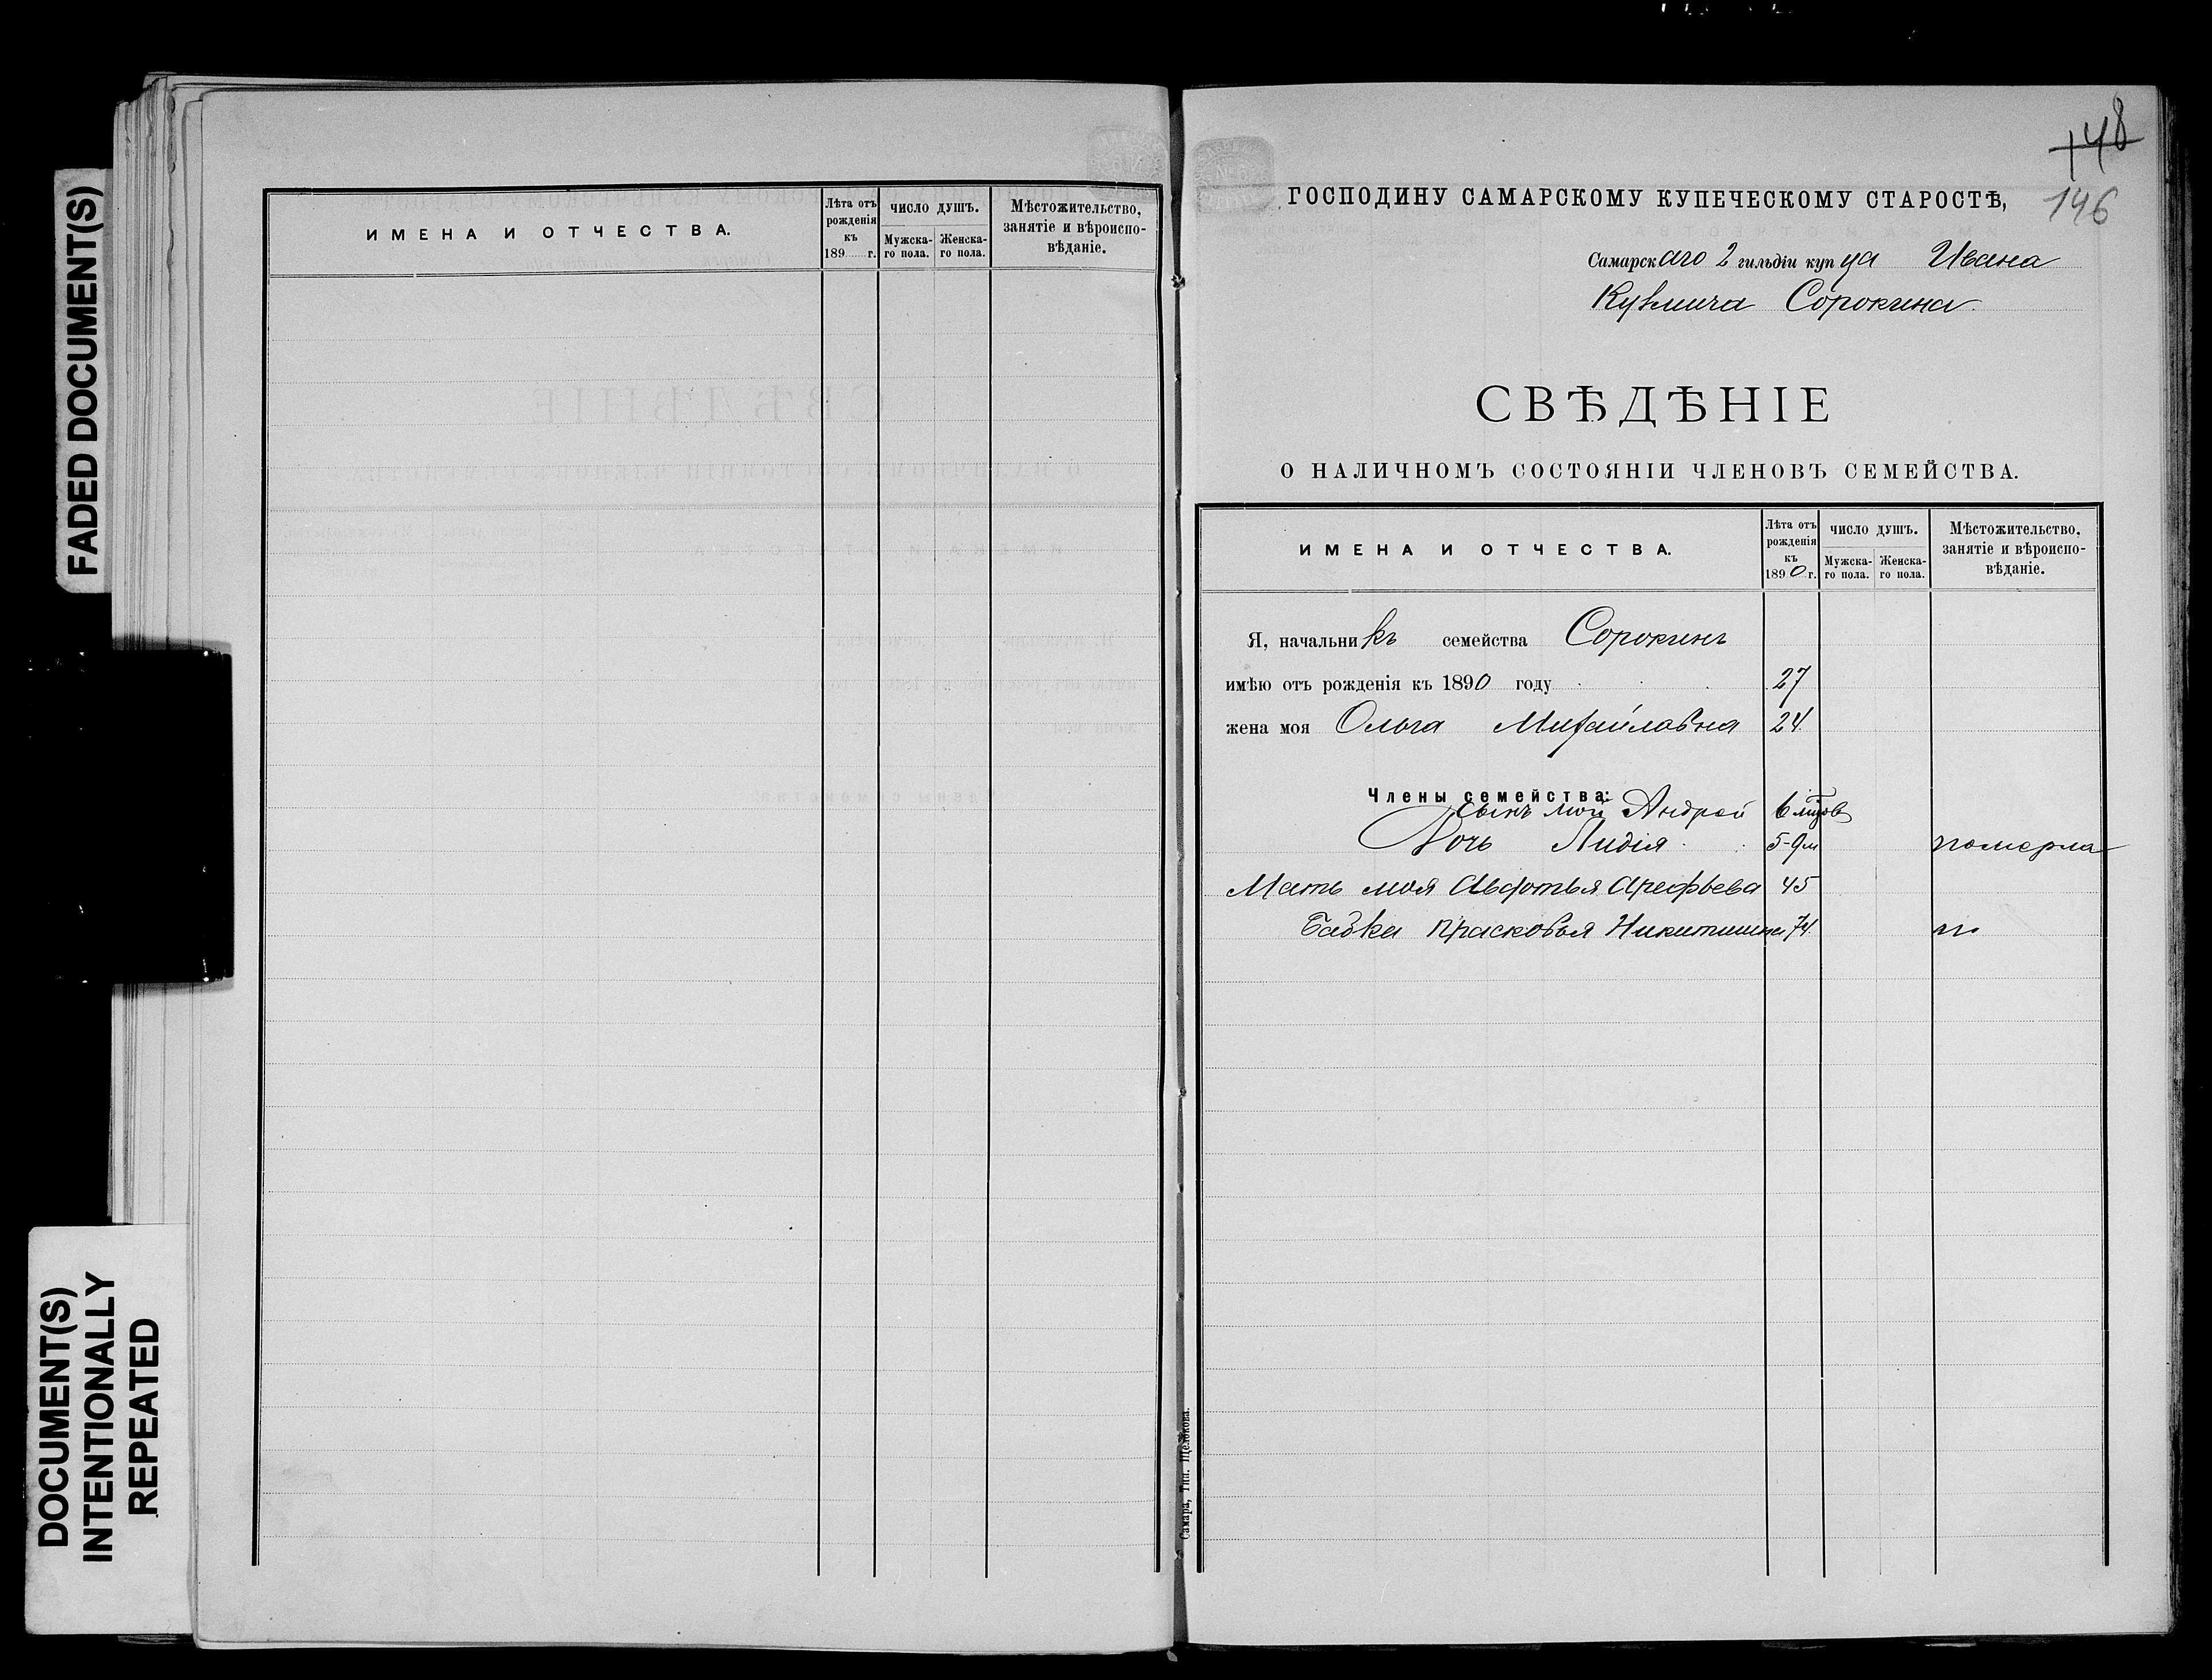 FADED DOCUMENT(S)
DOCUMENT(S)
INTENTIONALLY
REPEATED
ИМЕНА И ОТЧЕСТВА.
Лѣта отъ рожденія къ 189 г.
ЧИСЛО ДУШЪ.
Мужска-го пола.
Женска-го пола.
Мѣстожительство, занятіе и вѣроиспо-вѣданіе.
148
146
ГОСПОДИНУ САМАРСКОМУ КУПЕЧЕСКОМУ СТАРОСТѢ,
Самарскаго 2 гильдіи купца Ивана
Кузмича Сорокина.
СВѢДѢНІЕ
О НАЛИЧНОМЪ СОСТОЯНІИ ЧЛЕНОВЪ СЕМЕЙСТВА.
ИМЕНА И ОТЧЕСТВА.
Лѣта отъ рожденія къ 1890 г.
ЧИСЛО ДУШЪ.
Мужска-го пола.
Женска-го пола.
Мѣстожительство, занятіе и вѣроиспо-вѣданіе.
Я, начальникъ семейства Сорокинъ
имѣю отъ рожденія къ 1890 году 27
жена моя Ольга Михайловна 24
Члены семейства:
Сынъ мой Андрей 6
Дочь Лидія 5-9м померла
Мать моя Авдотья Арефьева 45
Бабка Прасковья Никитишна 74.
Самара, Тип. Щелокова.